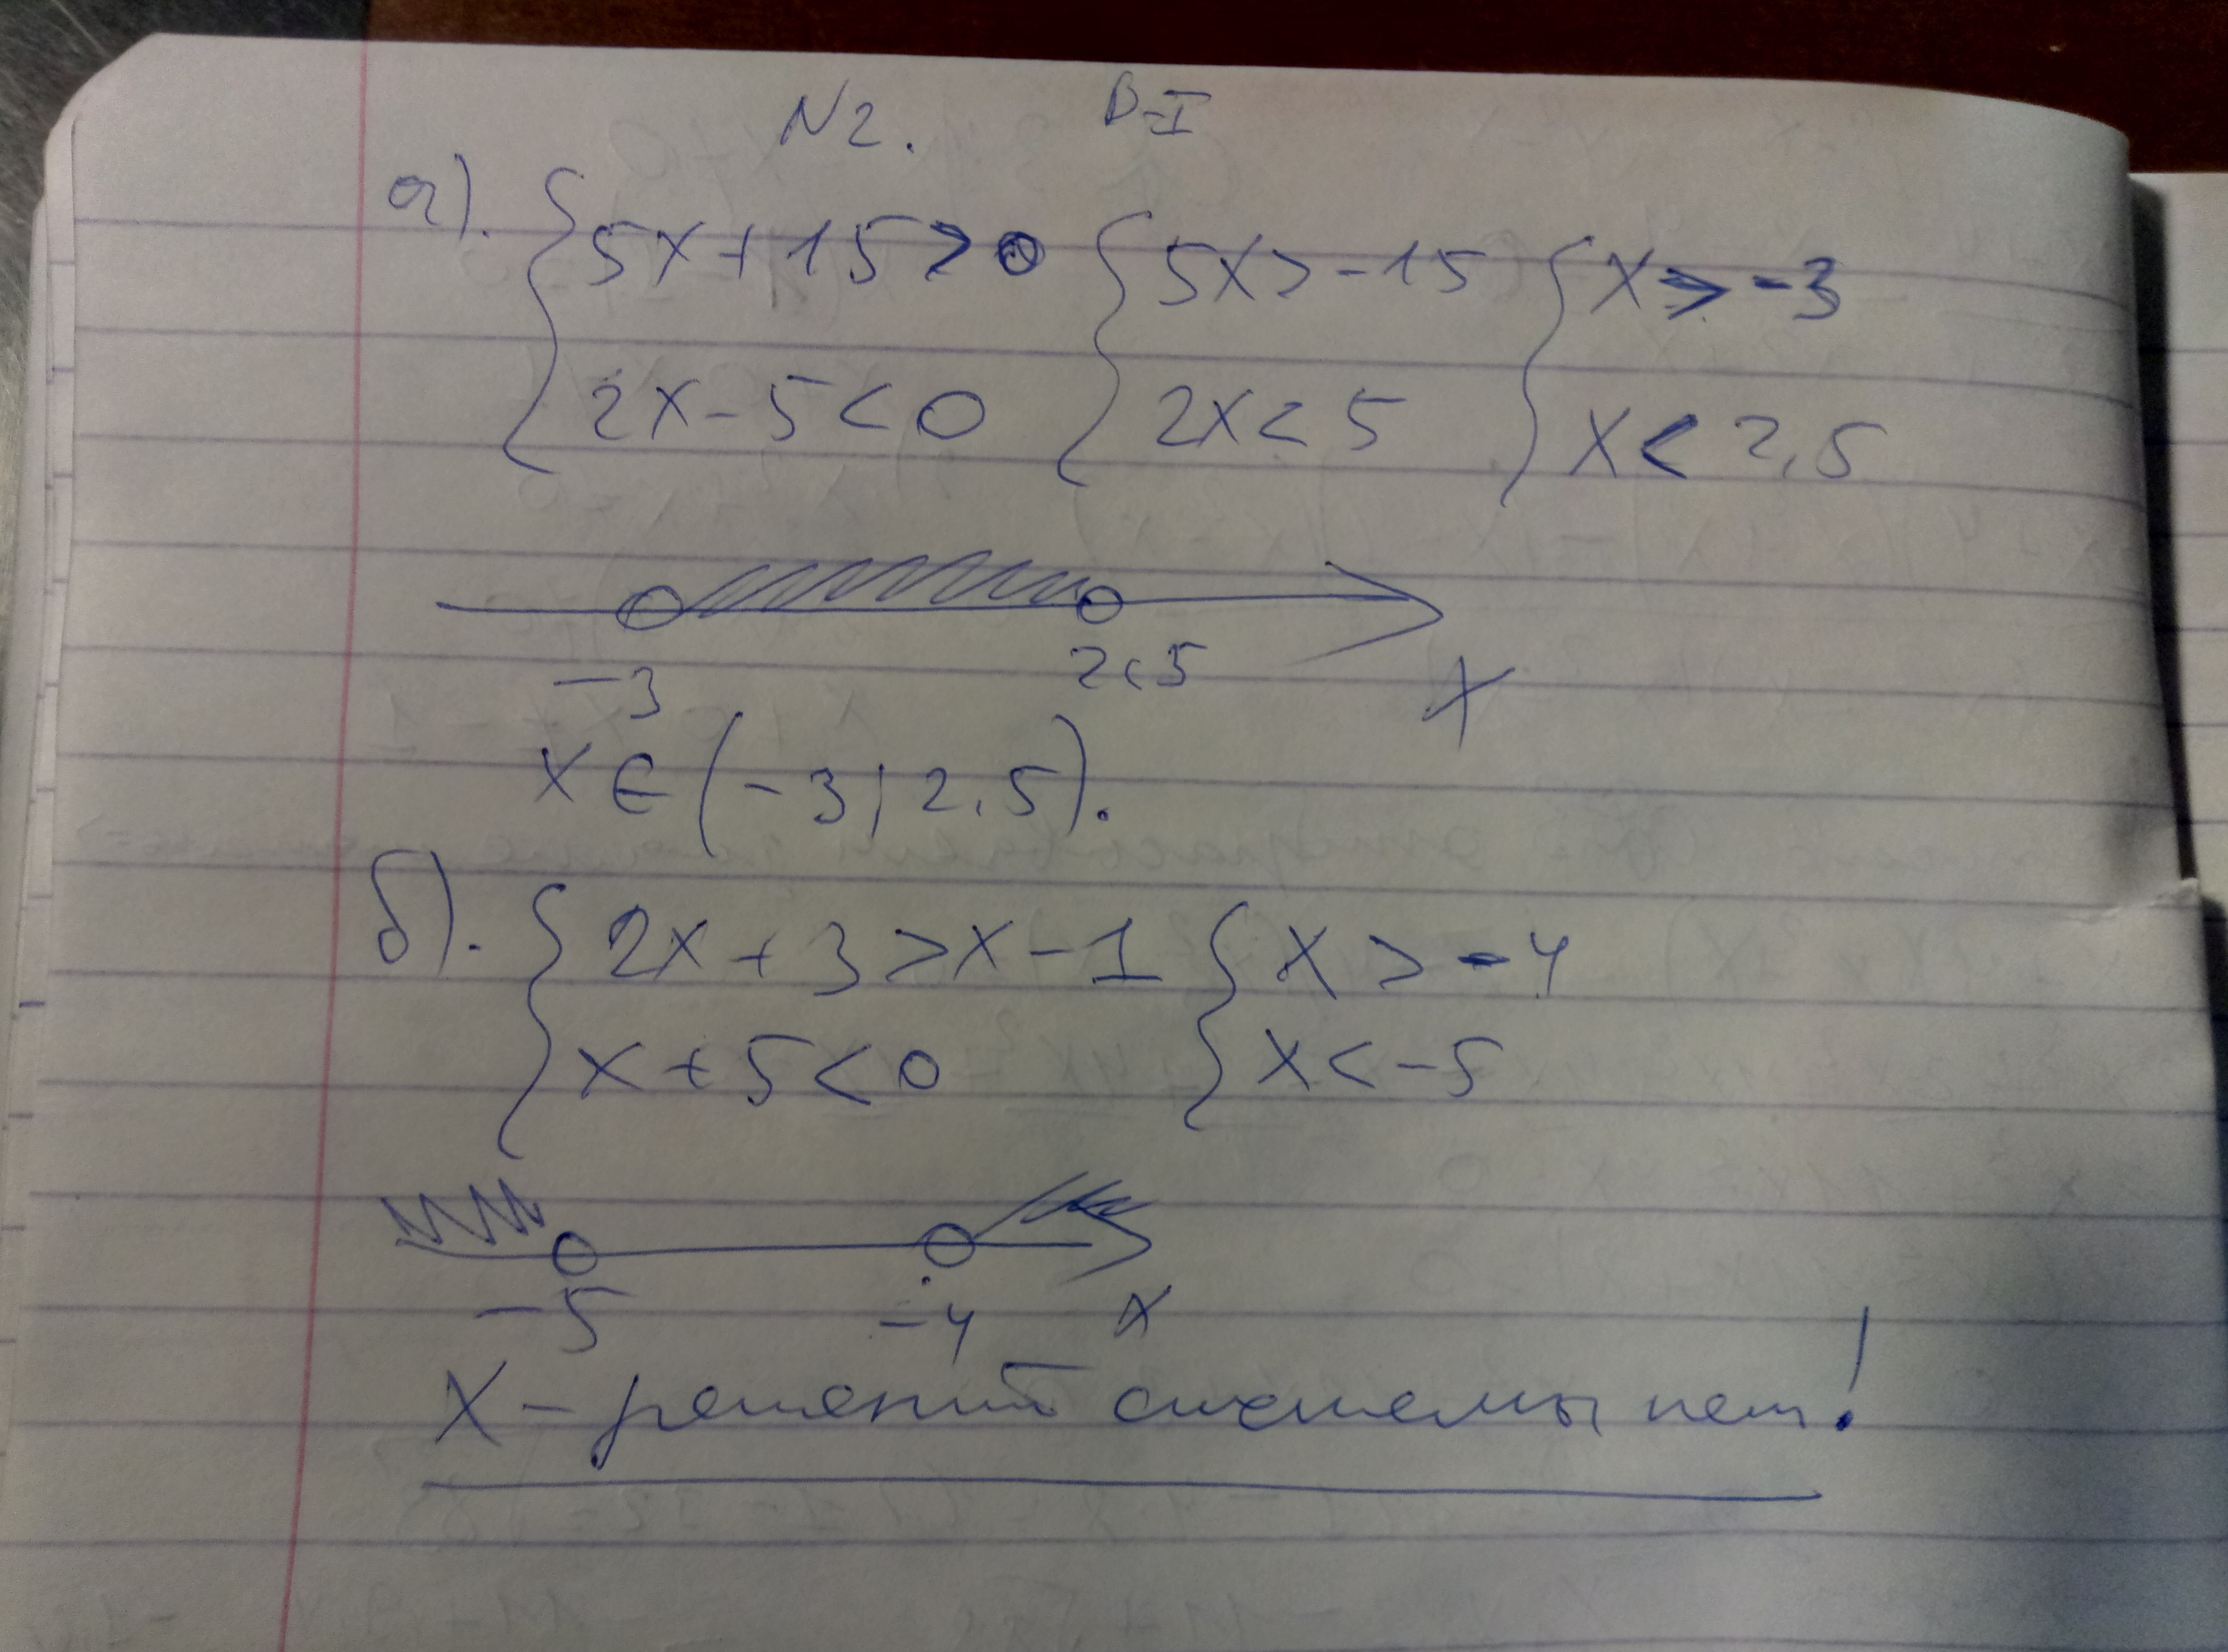 N2. В-I
а). { 5x+15>0 { 5x>-15 { x>-3
{ 2x-5<0 { 2x<5 { x<2,5
-3 2,5 x
x∈(-3;2,5).
б). { 2x+3>x-1 { x>-4
{ x+5<0 { x<-5
-5 -4 x
x - решений системы нет!